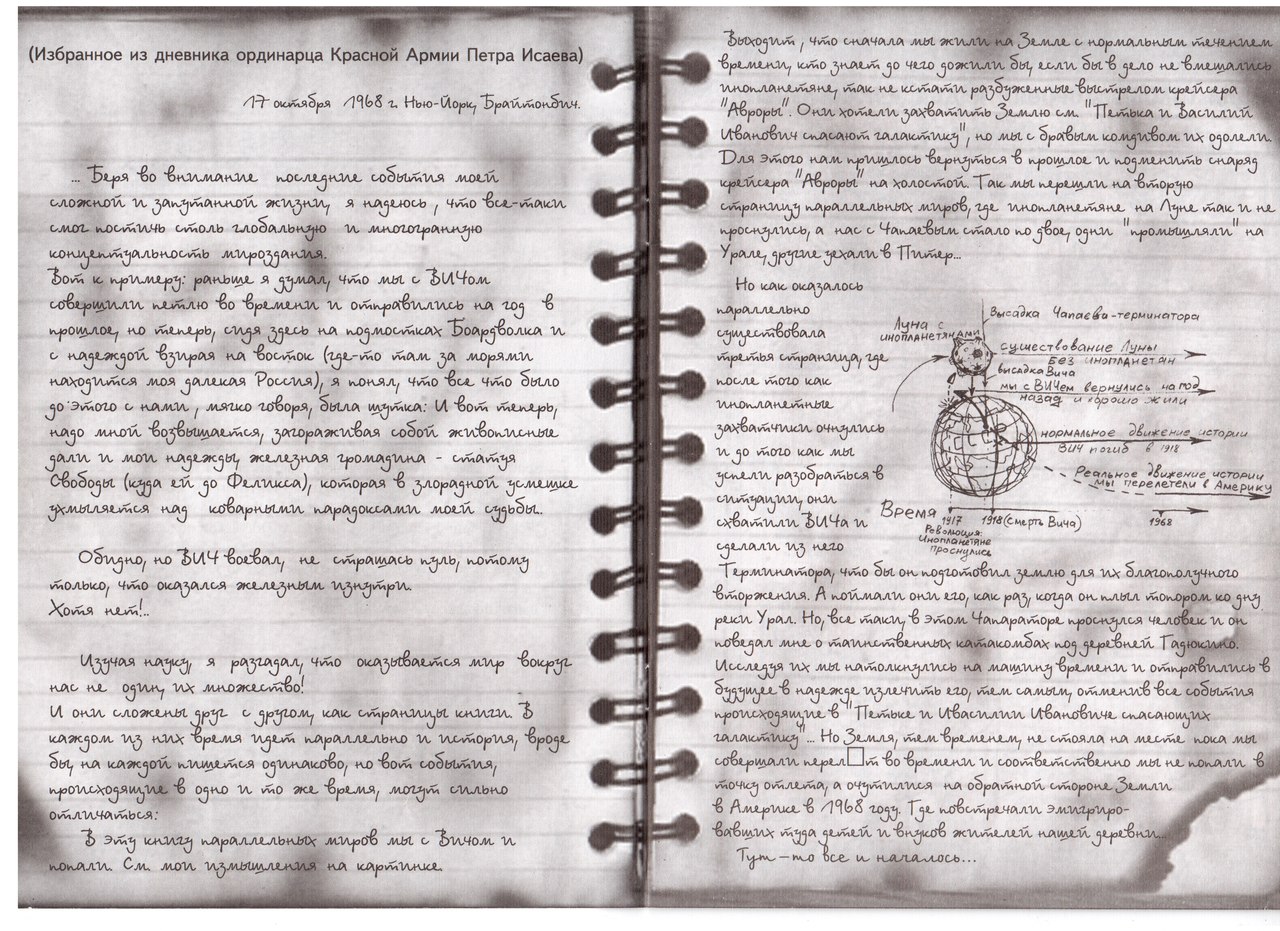 (Избранное из дневника ординарца Красной Армии Петра Исаева)
17 октября 1968 г. Нью-Йорк, Брайтонбич.
... Беря во внимание последние события моей
сложной и запутанной жизни, я надеюсь, что все-таки
смог постичь столь глобальную и многогранную
концептуальность мироздания.
Вот к примеру: раньше я думал, что мы с ВИЧом
совершили петлю во времени и отправились на год в
прошлое, но теперь, сидя здесь на подмостках Боардволка и
с надеждой взирая на восток (где-то там за морями
находится моя далекая Россия), я понял, что все что было
до этого с нами, мягко говоря, была шутка: И вот теперь,
надо мной возвышается, загораживая собой живописные
дали и мои надежды, железная громадина - статуя
Свободы (куда ей до Феликса), которая в злорадной усмешке
ухмыляется над коварными парадоксами моей судьбы..
Обидно, но ВИЧ воевал, не страшась пуль, потому
только, что оказался железным изнутри.
Хотя нет!..
Изучая науку, я разгадал, что оказывается мир вокруг
нас не один, их множество!
И они сложены друг с другом, как страницы книги. В
каждом из них время идет параллельно и история, вроде
бы, на каждой пишется одинаково, но вот события,
происходящие в одно и то же время, могут сильно
отличаться:
В эту книгу параллельных миров мы с Вичом и
попали. См. мои измышления на картинке.
Выходит, что сначала мы жили на Земле с нормальным течением
времени, кто знает до чего дожили бы, если бы в дело не вмешались
инопланетяне, так не кстати разбуженные выстрелом крейсера
"Авроры". Они хотели захватить Землю см. "Петька и Василий
Иванович спасают галактику", но мы с бравым комдивом их одолели.
Для этого нам пришлось вернуться в прошлое и подменить снаряд
крейсера "Авроры" на холостой. Так мы перешли на вторую
страницу параллельных миров, где инопланетяне на Луне так и не
проснулись, а нас с Чапаевым стало по двое, одни "промышляли" на
Урале, другие уехали в Питер...
Но как оказалось
параллельно
существовала
третья страница, где
после того как
инопланетные
захватчики очнулись
и до того как мы
успели разобраться в
ситуации, они
схватили ВИЧа и
сделали из него
Высадка Чапаева-терминатора
Луна с
инопланетянами
существование Луны
без инопланетян
высадка Вича
мы с ВИЧем вернулись на год
назад и хорошо жили
нормальное движение истории
ВИЧ погиб в 1918
Реальное движение истории
мы перелетели в Америку
Время
1917
1918 (смерть Вича)
1968
Революция.
Инопланетяне
проснулись
Терминатора, что бы он подготовил землю для их благополучного
вторжения. А поймали они его, как раз, когда он плыл топором ко дну
реки Урал. Но, все таки, в этом Чапараторе проснулся человек и он
поведал мне о таинственных катакомбах под деревней Гадюкино.
Исследуя их мы натолкнулись на машину времени и отправились в
будущее в надежде излечить его, тем самым, отменив все события
происходящие в "Петьке и Ивасилии Ивановиче спасающих
галактику"... Но Земля, тем временем, не стояла на месте пока мы
совершали перел□т во времени и соответственно мы не попали в
точку отлета, а очутились на обратной стороне Земли
в Америке в 1968 году. Где повстречали эмигриро-
вавших туда детей и внуков жителей нашей деревни...
Тут-то все и началось...